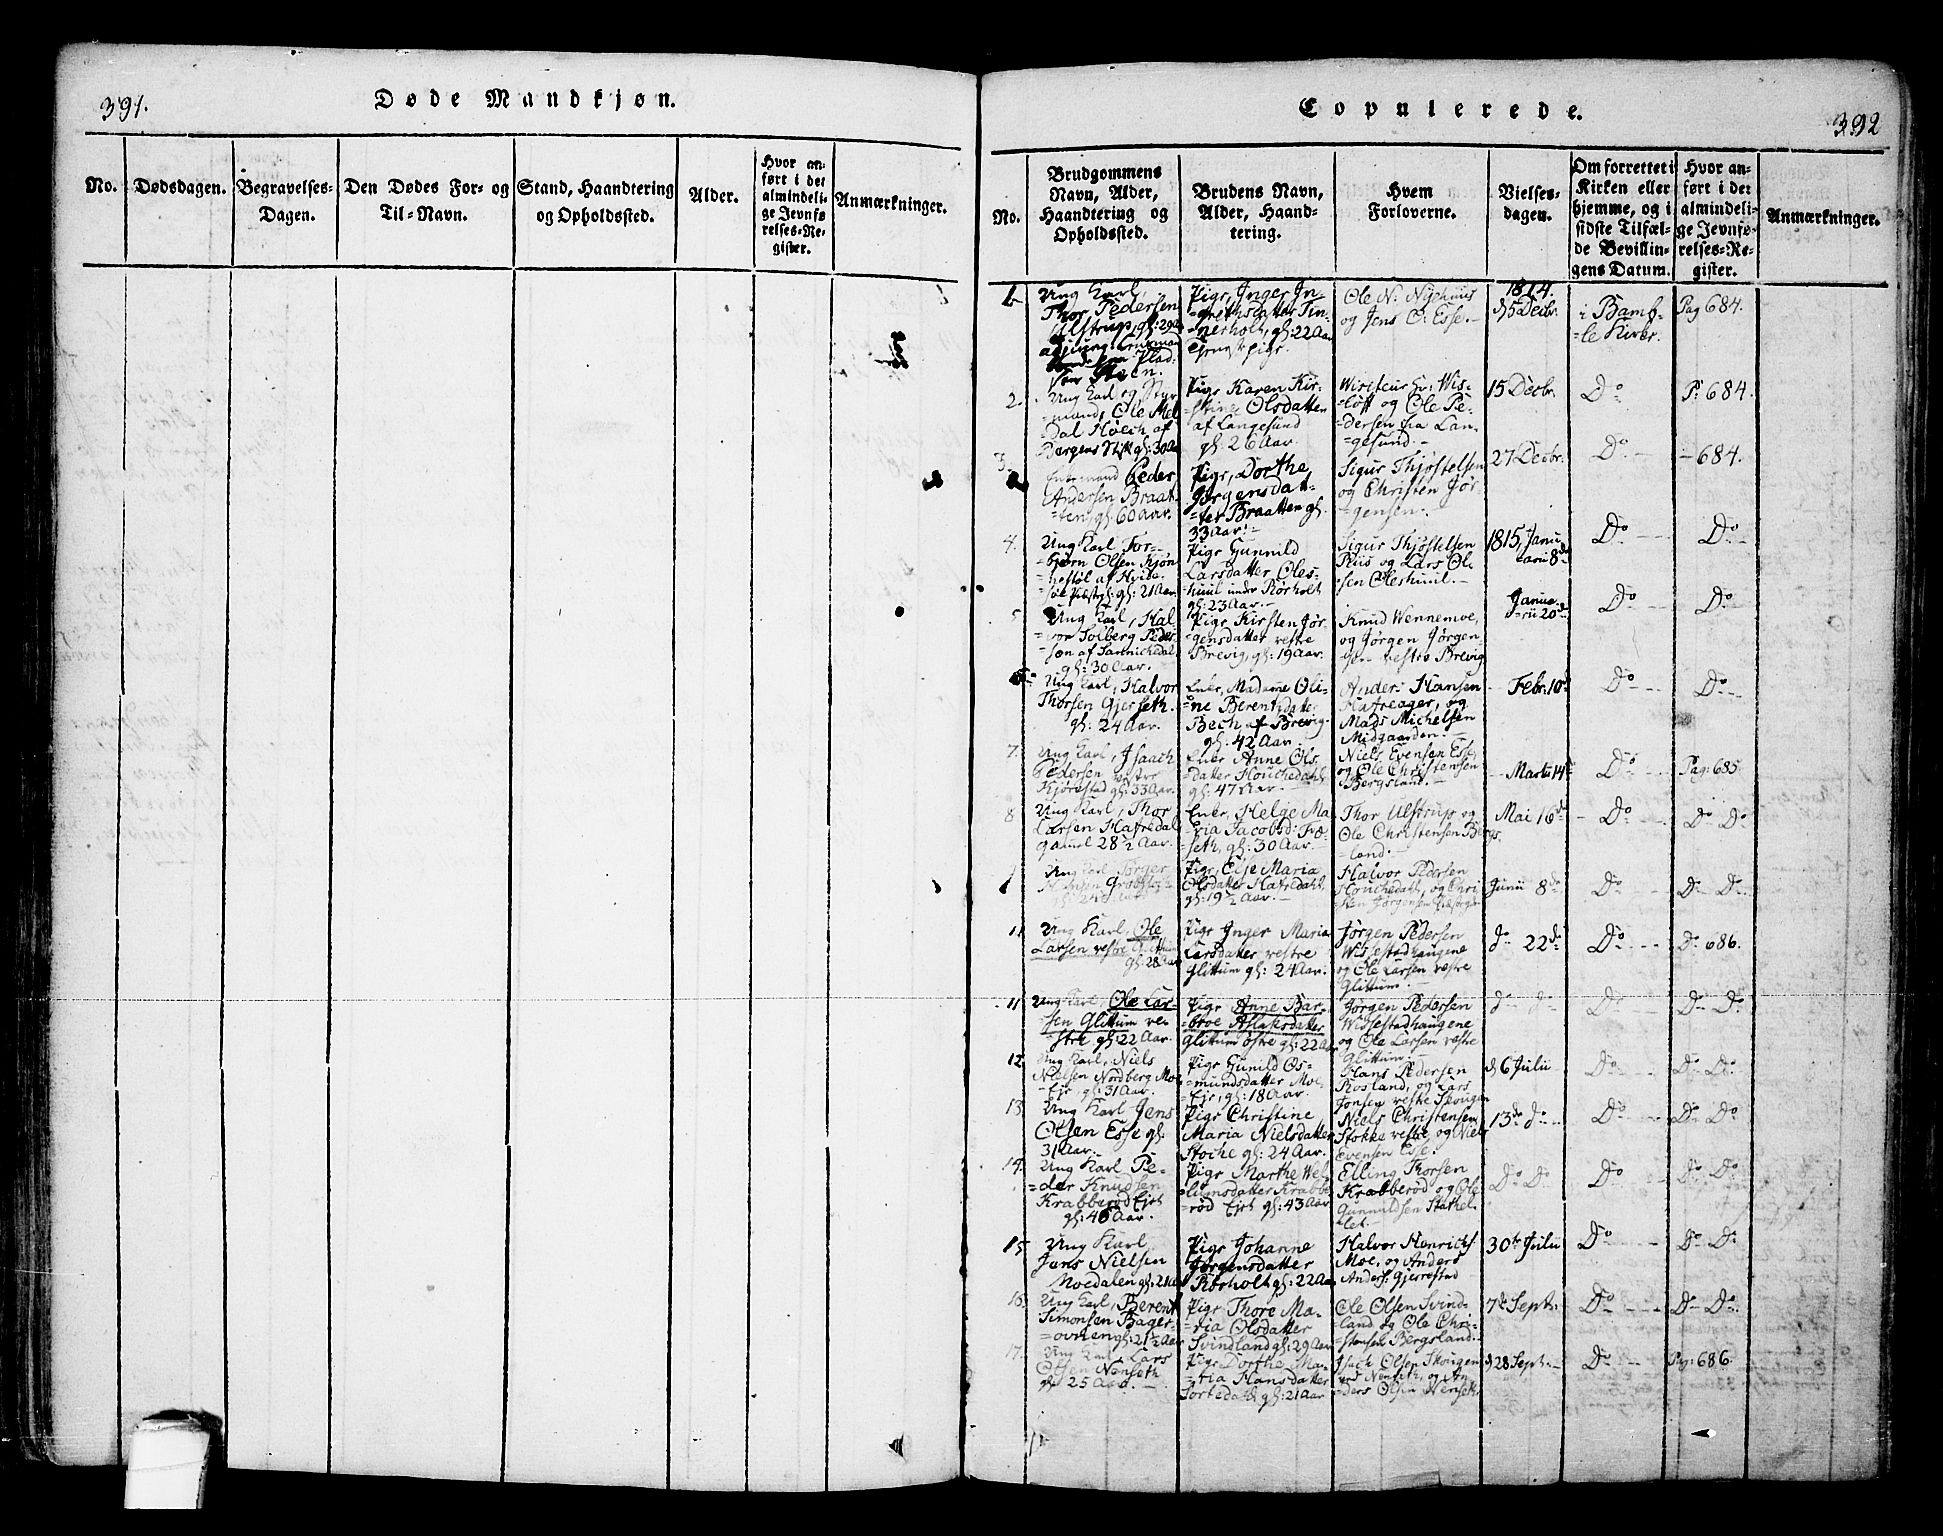 391.
Døde Mandkjøn.
No.
Dødsdagen.
Begravelses-
Dagen.
Den Dødes For- og
Til-Navn.
Stand, Haandtering
og Opholdssted.
Alder.
Hvor an-
ført i det
almindeli-
ge Jevnfø-
relses-Re-
gister.
Anmærkninger.
Copulerede.
392
No.
Brudgommens
Navn, Alder,
Haandtering og
Opholdssted.
Brudens Navn,
Alder, Haand-
tering.
Hvem
Forloverne.
Vielses-
dagen.
Om forrettet i
Kirken eller
hjemme, og i
sidste Tilfæl-
de Bevillin-
gens Datum.
Hvor an-
ført i det
almindeli-
ge Jevnfø-
relses-Re-
gister.
Anmærkninger.
Ung Karl,
Thor Pedersen
Ulstrup, gl: 29
Pladsen Steen.
Pige, Inger In-
=grethsdatter Tin-
=nerholt, gl: 22 Aar
Tjenestpige.
Ole N: Nyehuus
og Jens O: Esse.-
1814.
d 5 Decbr.
i Bamb-
le Kirke.
Pag 684.
2.
Ung Karl og Styr
=mand, Ole Mel
Dal Høech af
Bergens Stift gl: 30 Aa
Pige Karen Kir-
=stine Olsdatter
af Langesund
gl: 26 Aar
Wisiteur Hr: Wis-
=løff og Ole Pe-
=dersen fra Lan-
gesund.-
15 Decbr.
Do
P: 684.
3.
Enkemand Peder
Andersen Braat-
=ten, gl: 60 Aar.
Pige, Dorthe
Jørgensdat-
=ter Braatten gl:
33 Aar.-
Sigur Thjøstelsen
og Christen Jør-
=gensen.-
27 Decbr.
Do
- 684.
4.
Ung Karl, Tor-
=bjørn Olsen Kjøn
=nestøl af Hvide-
=søe Præstgl: gl: 21 Aar.
Pige Gunnild
Larsdatter Oles-
=huul under Rørholt
gl: 23 Aar.-
Sigur Thjøstelsen
Riis og Lars Ol-
=sen Oleshuul.-
1815, Janu
=arii 8de
Do
Do
5
Ung Karl, Hal-
=vor Solberg Peder-
=sen af Sannichedal
gl: 30 Aar.
Pige Kirsten Jør-
=gensdatter vestre
Brevig, gl: 19 Aar.
Knud Wennemoe,
og Jørgen Jørgen-
=sen vestre Brevig
Janua-
=rii 20de
Do
Do
6
Ung Karl, Halvor
Thorsen Gjerseth.
gl: 24 Aar
Enke, Madame Oli-
=ne Berentsdatter
Bech af Brevig.
gl: 42 Aar.
Anders Hansen
Hafreager, og
Mads Michelsen
Midgaarden.-
- Febr: 10de
Do
Do
7.
Ung Karl, Isaach
Pedersen vestre
Kjørestad gl: 33 Aar.
Enke Anne Ols
=datter Houchedahl
gl: 47 Aar.-
Niels Evensen Esse
og Ole Christensen
Bergsland.-
- Martii 14de
Do
Pag: 685.
8
Ung Karl, Thor
Larsen Hafredal
gamel 28½ Aar.
Enke, Helge Ma
=ria Jacobsd: Fræ-
=seth, gl: 30 Aar.-
Thor Ulstrup og
Ole Christensen Bergs-
=land.-
Mai 16de
Do
Do Do
Ung Karl Tørger
Pige, Else Maria
Olsdatter Hafredahl
gl: 19½ Aar.-
Halvor Pedersen
Houchedahl, og Chri
=sten Jørgensen
Junii 8de
Do
Do Do
Ung Karl, Ole
Larsen vestre Glittum
gl: 28 Aar
Pige Inger Maria
Larsdatter vestre
Glittum gl: 24 Aar.
Jørgen Pedersen
Wissestadhaugene
og Ole Larsen vestre
Glittum.-
do 22de
Do
Do 686.
11
Ung Karl, Ole Lar-
=sen Glittum ve-
stre gl: 22 Aar.
Pige Anne Bar-
=broe Aslaksdatter
Glittum østre gl: 22 Aar
Jørgen Pedersen
Wissestadhaugene
og Ole Larsen vestre
Glittum.-
do do
Do
Do Do
12.
Ung Karl, Niels
Nielsen Nordberg Moe
Eje, gl: 31 Aar.
Pige Gunild Os-
=mundsdatter Moe,
=Eje, gl: 18 Aar.
Hans Pedersen
Rosland, og Lars
Jonsen vestre Skougen
d 6 Julii
Do
Do Do
13.
Ung Karl Jens
Olsen Esse gl:
31 Aar.
Pige Christine
Maria Nielsdatter
Stocke gl: 24 Aar.
Niels Christensen
Stokke vestre, og Niels
Evensen Esse.
13de do
Do
Do Do
14.
Ung Karl Pe-
=der Knudsen
Krabberød Ejet
gl: 46 Aar.
Pige Marthe Wel-
=lumsdatter Krabbe
=rød Ejet gl: 43 Aar
Elling Thorsen
Krabberød og Ole
Gunnildsen Stathel-
let.-
Do Do
Do
Do Do
15
Ung Karl
Jens Nielsen
Moedalen gl: 21 Aar
Pige Johanne
Jørgensdatter
Rørholt gl: 22 Aar
Halvor Henrichs
Moe, og Anders
Anders: Gjerrestad
30te Julii
Do
Do Do
16.
Ung Karl, Berent
Simonsen Bager-
=ovnen gl: 21½ Aar
Pige Thore Ma-
=ria Olsdatter
Svindland gl: 29 Aar
Ole Olsen Svind-
=land og Ole Chri-
=stensen Bergsland.
7de Septr:
Do
Do Do.
17.
Ung Karl Lars
Olsen Nenseth
gl: 25 Aar.
Pige Dorthe Ma-
=ria Hansdatter
Tortedahl gl: 21 Aar
Isach Olsen Skougen
ved Nenseth, og An-
=ders Olsen Nenseth.
d 28 Septr:
Do
Pag: 686.